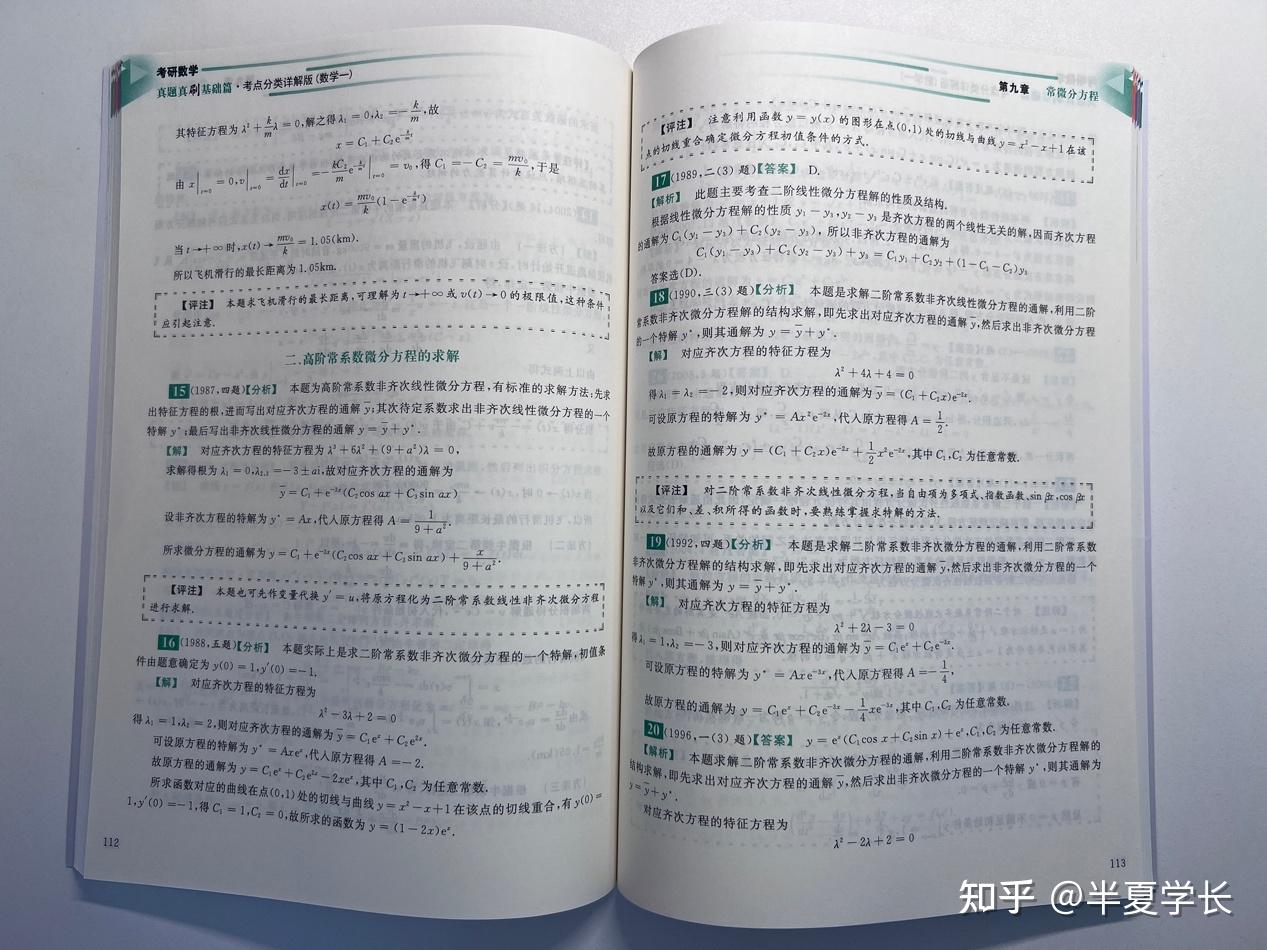 考研数学
真题真刷基础篇·考点分类详解版(数学一)
其特征方程为 λ² + k/m λ = 0,解之得 λ₁ = 0,λ₂ = -k/m,故
x = C₁ + C₂e^{-k/m t}
由 x|_{t=0} = 0,v|_{t=0} = dx/dt|_{t=0} = -kC₂/m e^{-k/m t}|_{t=0} = v₀,得 C₁ = -C₂ = mv₀/k,于是
x(t) = mv₀/k (1 - e^{-k/m t})
当 t→+∞ 时,x(t) → mv₀/k = 1.05(km).
所以飞机滑行的最长距离为 1.05km.
【评注】 本题求飞机滑行的最长距离,可理解为 t→+∞ 或 v(t) → 0 的极限值,这种条件
应引起注意.
二、高阶常系数微分方程的求解
15 (1987,四题)【分析】 本题为高阶常系数非齐次线性微分方程,有标准的求解方法:先求
出特征方程的根,进而写出对应齐次方程的通解 ȳ;其次待定系数求出非齐次线性微分方程的一个
特解 y*;最后写出非齐次线性微分方程的通解 y = ȳ + y*.
【解】 对应齐次方程的特征方程为 λ³ + 6λ² + (9 + a²)λ = 0,
求解得根为 λ₁ = 0,λ₂,₃ = -3 ± ai,故对应齐次方程的通解为
ȳ = C₁ + e^{-3x}(C₂cos ax + C₃sin ax)
设非齐次方程的特解为 y* = Ax,代入原方程得 A = 1/(9 + a²).
所求微分方程的通解为 y = C₁ + e^{-3x}(C₂cos ax + C₃sin ax) + x/(9 + a²).
【评注】 本题也可先作变量代换 y′ = u,将原方程化为二阶常系数线性非齐次微分方程
进行求解.
16 (1988,五题)【分析】 本题实际上是求二阶常系数非齐次微分方程的一个特解,初值条
件由题意确定为 y(0) = 1,y′(0) = -1.
【解】 对应齐次方程的特征方程为
λ² - 3λ + 2 = 0
得 λ₁ = 1,λ₂ = 2,则对应齐次方程的通解为 ȳ = C₁eˣ + C₂e^{2x}.
可设原方程的特解为 y* = Axeˣ,代入原方程得 A = -2.
故原方程的通解为 y = C₁eˣ + C₂e^{2x} - 2xeˣ,其中 C₁,C₂ 为任意常数.
所求函数对应的曲线在点(0,1)处的切线与曲线 y = x² - x + 1 在该点的切线重合,有 y(0) =
1,y′(0) = -1,得 C₁ = 1,C₂ = 0,故所求的函数为 y = (1 - 2x)eˣ.
112
第九章 常微分方程
【评注】 注意利用函数 y = y(x) 的图形在点(0,1)处的切线与曲线 y = x² - x + 1 在该
点的切线重合确定微分方程初值条件的方式.
17 (1989,二(3)题)【答案】 D.
【解析】 此题主要考查二阶线性微分方程解的性质及结构.
根据线性微分方程解的性质 y₁ - y₃,y₂ - y₃ 是齐次方程的两个线性无关的解,因而齐次方程
的通解为 C₁(y₁ - y₃) + C₂(y₂ - y₃),所以非齐次方程的通解为
C₁(y₁ - y₃) + C₂(y₂ - y₃) + y₃ = C₁y₁ + C₂y₂ + (1 - C₁ - C₂)y₃
答案选(D).
18 (1990,三(3)题)【分析】 本题是求解二阶常系数非齐次线性微分方程的通解,利用二阶
常系数非齐次微分方程解的结构求解,即先求出对应齐次方程的通解 ȳ,然后求出非齐次微分方程
的一个特解 y*,则其通解为 y = ȳ + y*.
【解】 对应齐次方程的特征方程为
λ² + 4λ + 4 = 0
得 λ₁ = λ₂ = -2,则对应齐次方程的通解为 ȳ = (C₁ + C₂x)e^{-2x}.
可设原方程的特解为 y* = Ax²e^{-2x},代入原方程得 A = 1/2.
故原方程的通解为 y = (C₁ + C₂x)e^{-2x} + 1/2 x²e^{-2x},其中 C₁,C₂ 为任意常数.
【评注】 对二阶常系数非齐次线性微分方程,当自由项为多项式、指数函数、sin βx,cos βx
以及它们和、差、积所得的函数时,要熟练掌握求特解的方法.
19 (1992,四题)【分析】 本题是求解二阶常系数非齐次微分方程的通解,利用二阶常系数
非齐次微分方程解的结构求解,即先求出对应齐次方程的通解 ȳ,然后求出非齐次微分方程的一个
特解 y*,则其通解为 y = ȳ + y*.
【解】 对应齐次方程的特征方程为
λ² + 2λ - 3 = 0
得 λ₁ = 1,λ₂ = -3,则对应齐次方程的通解为 ȳ = C₁eˣ + C₂e^{-3x}.
可设原方程的特解为 y* = Axe^{-3x},代入原方程得 A = -1/4,
故原方程的通解为 y = C₁eˣ + C₂e^{-3x} - 1/4 xe^{-3x},其中 C₁,C₂ 为任意常数.
20 (1996,一(3)题)【答案】 y = eˣ(C₁cos x + C₂sin x) + eˣ,C₁,C₂ 为任意常数.
【解析】 本题求解二阶常系数非齐次微分方程的通解,利用二阶常系数非齐次微分方程解的
结构求解,即先求出对应齐次方程的通解 ȳ,然后求出非齐次微分方程的一个特解 y*,则其通解为
y = ȳ + y*.
对应齐次方程的特征方程为
λ² - 2λ + 2 = 0
113
知乎 @半夏学长